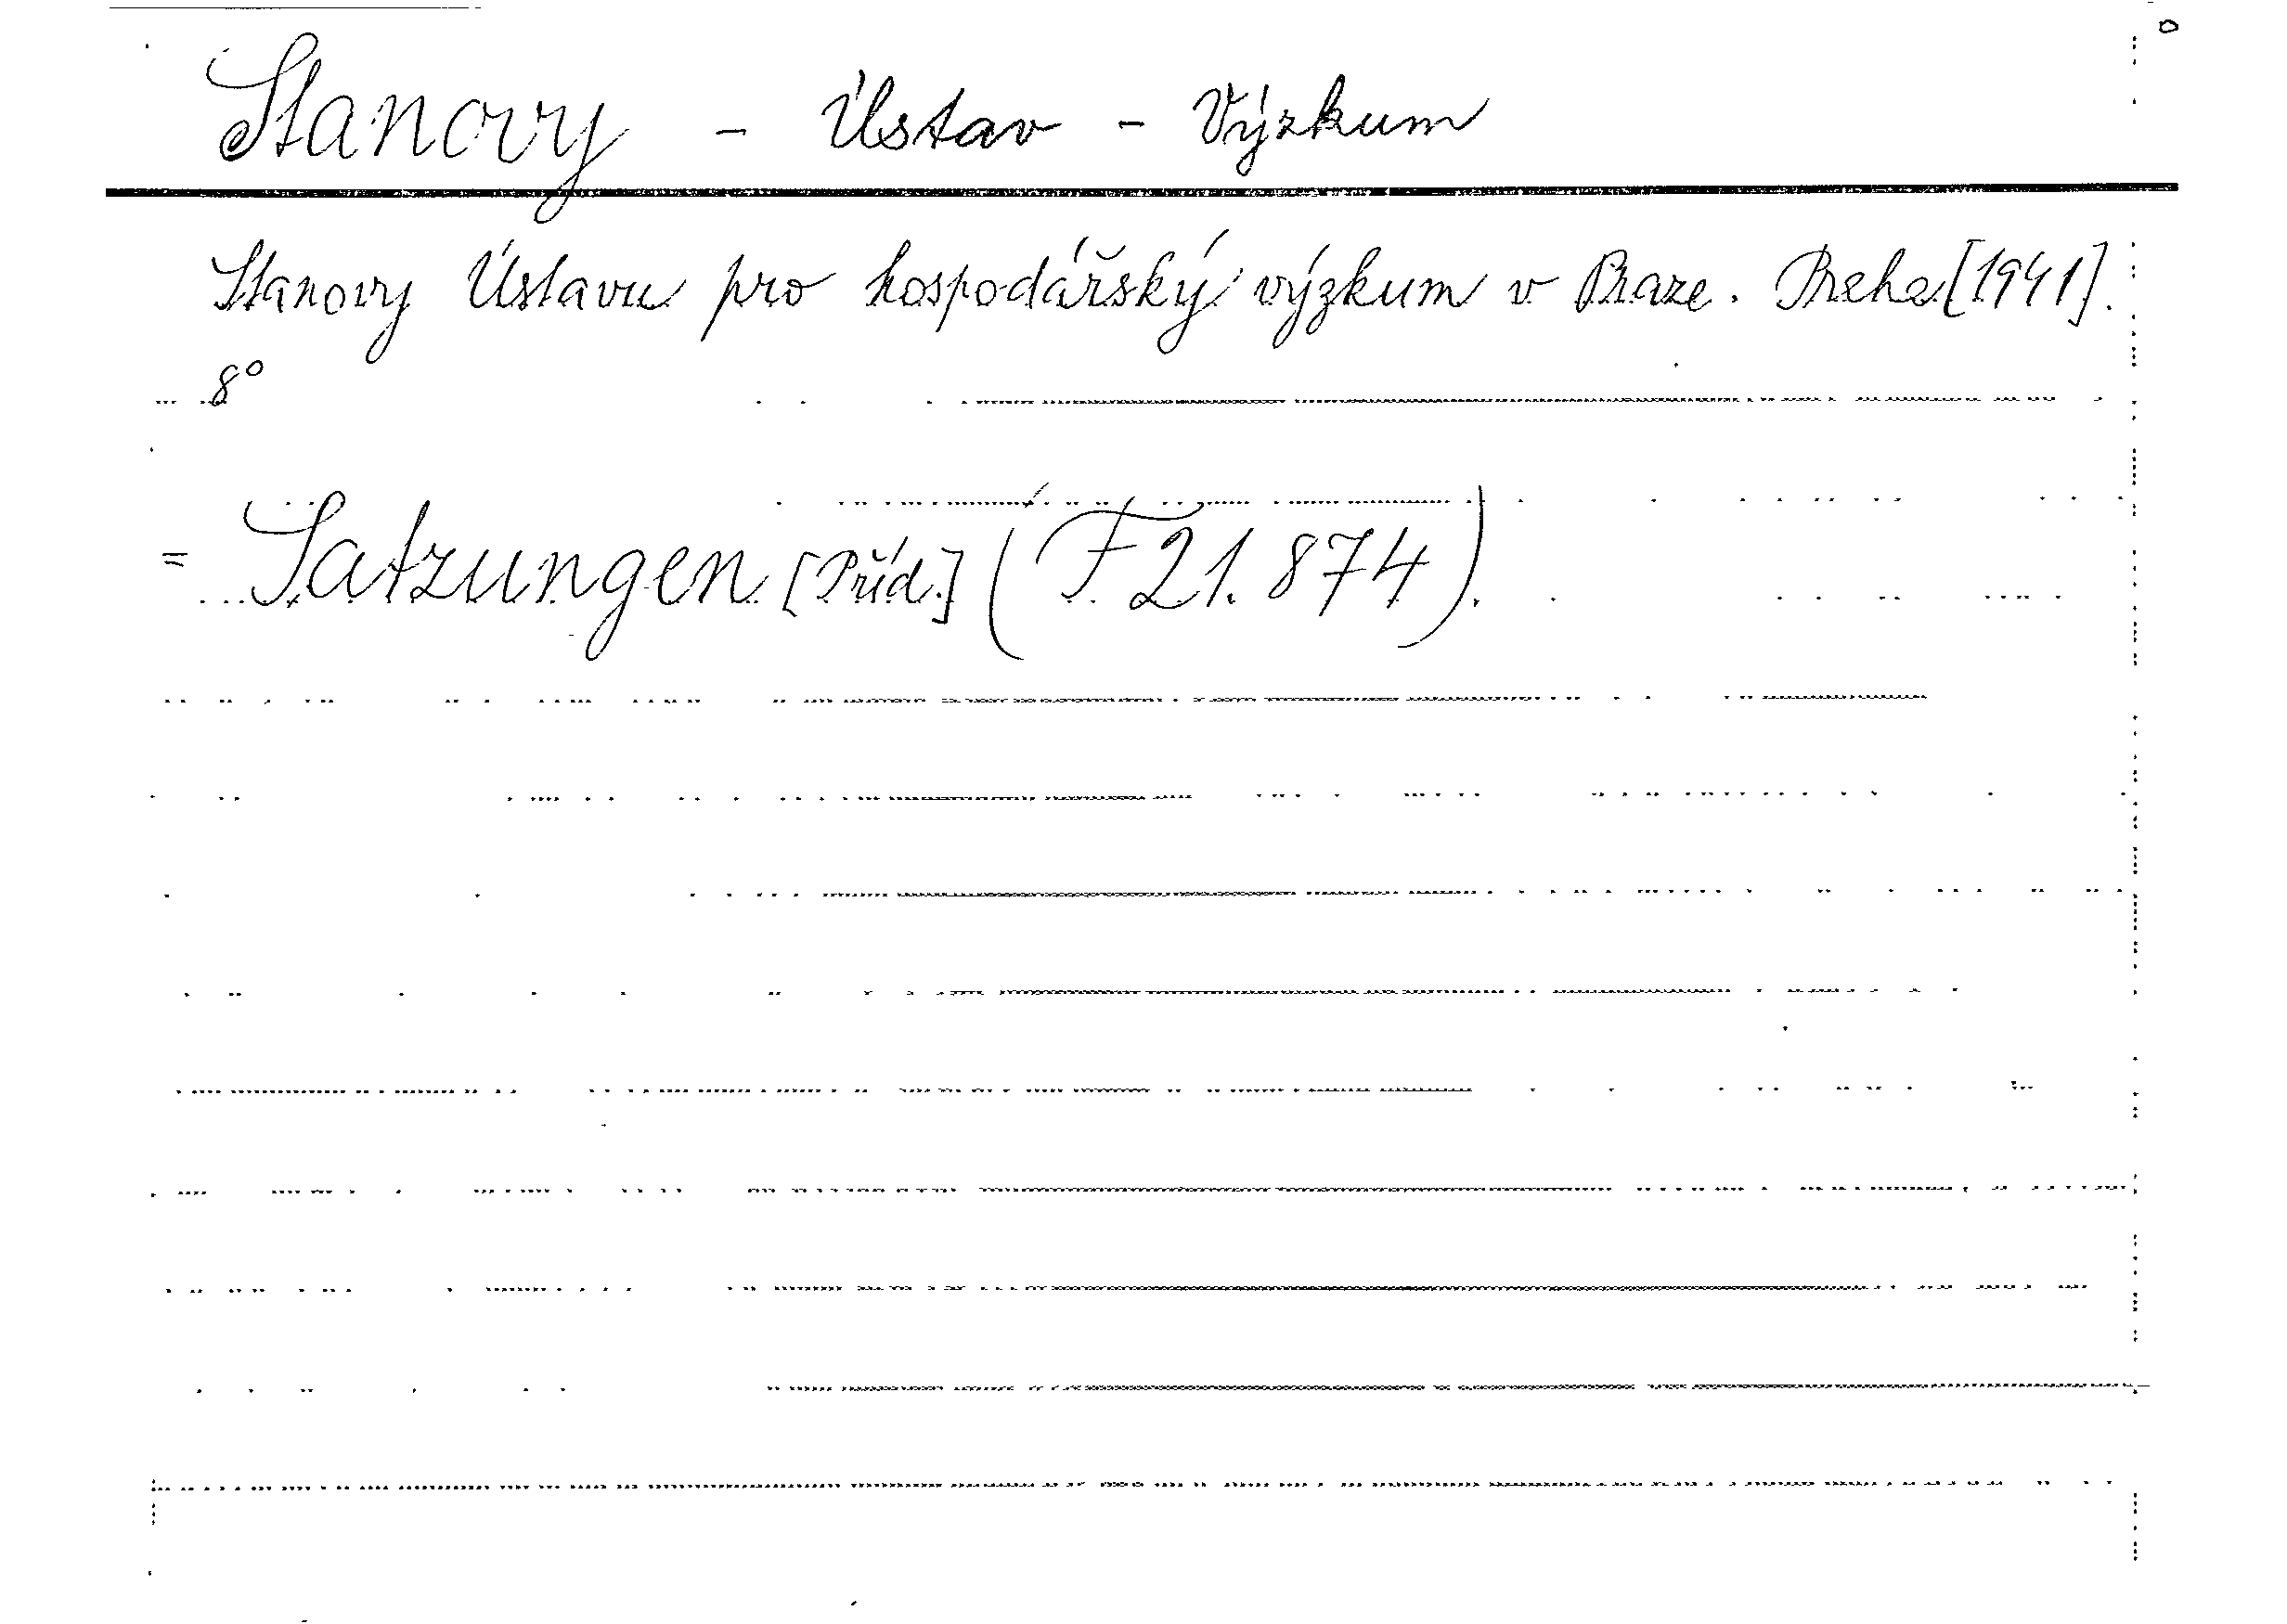 Stanovy - Ústav - Výzkum
Stanovy Ústavu pro hospodářský výzkum v Praze. Praha [1941].
8°
= Satzungen [Příd.] (F 21.874).